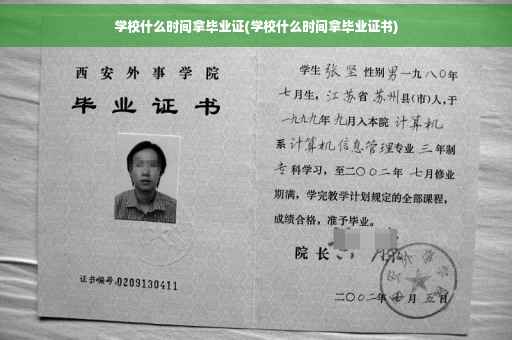 学校什么时间拿毕业证(学校什么时间拿毕业证书)
西安外事学院
毕业证书
证书编号:0209130411
学生 张坚 性别 男 一九八〇年
七月生，江苏省 苏州县(市)人，于
一九九九年 九月入本院 计算机
系 计算机信息管理专业 三 年制
专 科学习，至二〇〇二年 七月修业
期满，学完教学计划规定的全部课程，
成绩合格，准予毕业。
院长
二〇〇二年 七 月 五 日